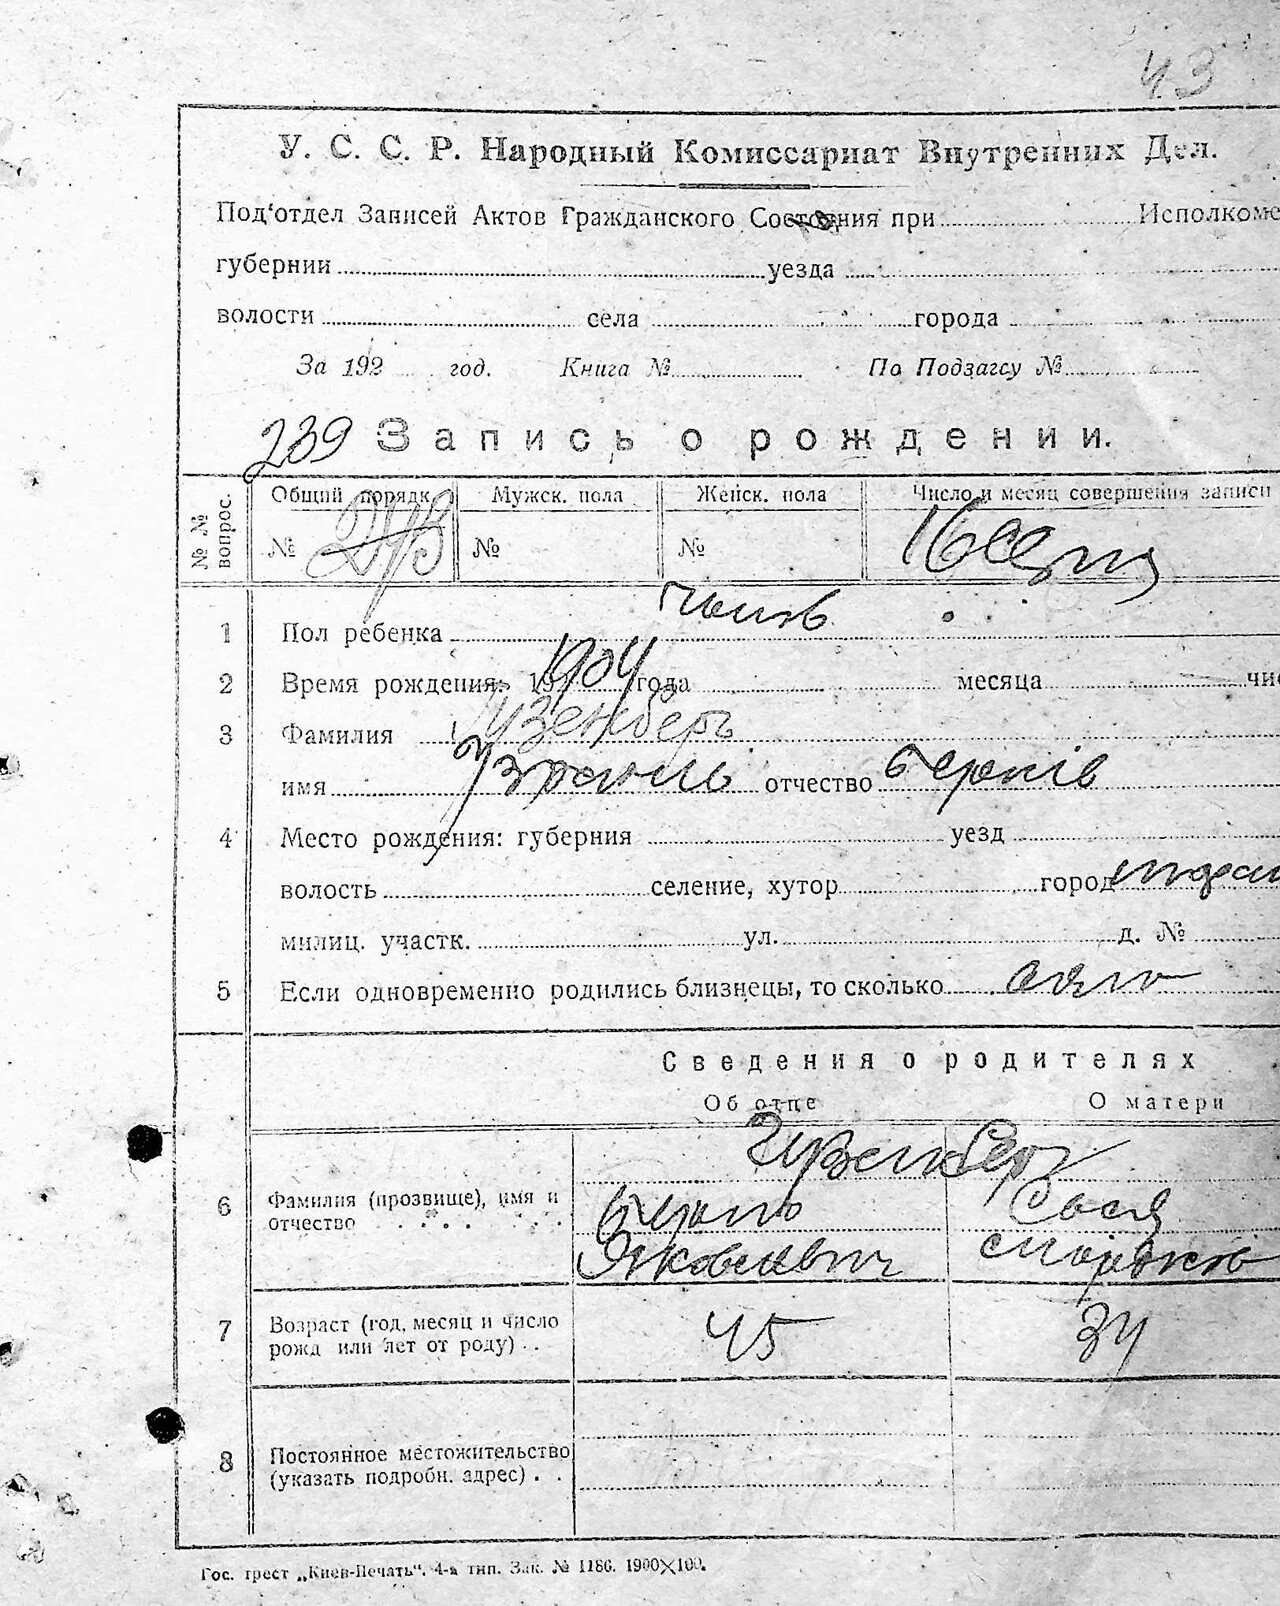 43
У. С. С. Р. Народный Комиссариат Внутренних Дел.
Под'отдел Записей Актов Гражданского Состояния при Исполкоме
губернии уезда
волости села города
За 192 год. Книга № По Подзагсу №
239 Запись о рождении.
№№ вопрос. Общий порядк. Мужск. пола Женск. пола Число и месяц совершения записи
№ 243 № № 16
1 Пол ребенка
2 Время рождения: 1904 года месяца чис
3 Фамилия Гузенберг
имя отчество Берків
4 Место рождения: губерния уезд
волость селение, хутор город
милиц. участк. ул. д. №
5 Если одновременно родились близнецы, то сколько одно
Сведения о родителях
Об отце О матери
Гузенберг
6 Фамилия (прозвище), имя и отчество Берко Яковлевич Сося
7 Возраст (год, месяц и число рожд или лет от роду) . . 45 34
8 Постоянное местожительство (указать подробн. адрес) . .
Гос. трест „Киев-Печать". 4-я тип. Зак. № 1186. 1900×100.